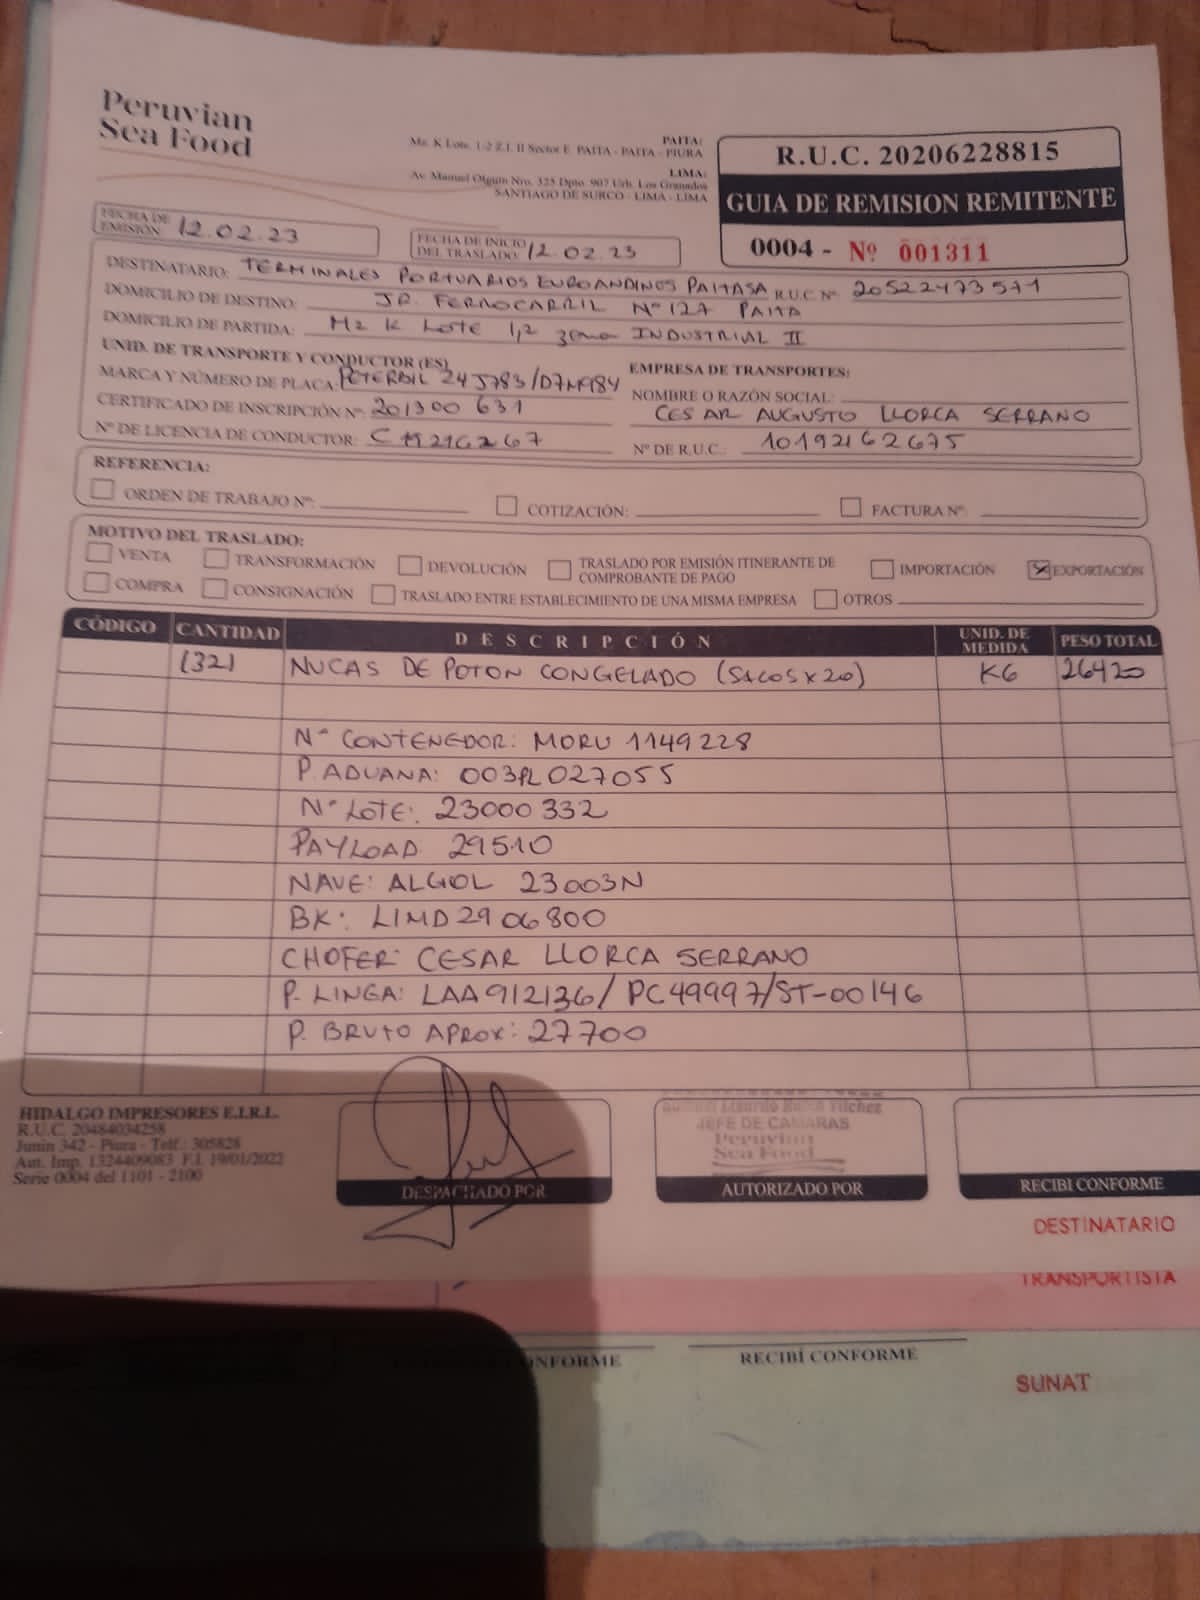 Peruvian
Sea Food
PAITA:
Mz. K Lote. 1-2 Z.I. II Sector E PAITA - PAITA - PIURA
LIMA:
Av. Manuel Olguin Nro. 325 Dpto. 907 Urb. Los Granados
SANTIAGO DE SURCO - LIMA - LIMA
R.U.C. 20206228815
GUIA DE REMISION REMITENTE
0004 - Nº 001311
FECHA DE EMISIÓN: 12.02.23
FECHA DE INICIO DEL TRASLADO: 12.02.23
DESTINATARIO: TERMINALES PORTUARIOS EUROANDINOS PAITASA R.U.C Nº 20522473571
DOMICILIO DE DESTINO: JR. FERROCARRIL Nº 127 PAITA
DOMICILIO DE PARTIDA: Mz K LOTE 1,2 zona INDUSTRIAL II
UNID. DE TRANSPORTE Y CONDUCTOR (ES)
MARCA Y NÚMERO DE PLACA: PETERBIL
CERTIFICADO DE INSCRIPCIÓN Nº: 201300 631
Nº DE LICENCIA DE CONDUCTOR:
EMPRESA DE TRANSPORTES:
NOMBRE O RAZÓN SOCIAL:
CESAR AUGUSTO LLORCA SERRANO
Nº DE R.U.C.: 10192162675
REFERENCIA:
ORDEN DE TRABAJO Nº:
COTIZACIÓN:
FACTURA Nº:
MOTIVO DEL TRASLADO:
VENTA
TRANSFORMACIÓN
DEVOLUCIÓN
TRASLADO POR EMISIÓN ITINERANTE DE
COMPROBANTE DE PAGO
IMPORTACIÓN
EXPORTACIÓN
COMPRA
CONSIGNACIÓN
TRASLADO ENTRE ESTABLECIMIENTO DE UNA MISMA EMPRESA
OTROS
CÓDIGO CANTIDAD DESCRIPCIÓN UNID. DE MEDIDA PESO TOTAL
1321 NUCAS DE POTON CONGELADO (SACOS x 20) KG 26420
Nº CONTENEDOR: MORU 1149228
P. ADUANA: 003PL027055
Nº LOTE: 23000332
PAYLOAD: 29510
NAVE: ALGOL 23003N
BK: LIMD2906800
CHOFER: CESAR LLORCA SERRANO
P. LINEA: LAA912136/ PC49997/ST-00146
P. BRUTO APROX: 27700
HIDALGO IMPRESORES E.I.R.L.
R.U.C. 20484034258
Junín 342 - Piura - Telf.: 305828
Aut. Imp. 1324409083 F.I. 19/01/2022
Serie 0004 del 1101 - 2100
DESPACHADO POR
JEFE DE CAMARAS
Peruvian
Sea Food
AUTORIZADO POR
RECIBI CONFORME
DESTINATARIO
TRANSPORTISTA
CONFORME
RECIBÍ CONFORME
SUNAT